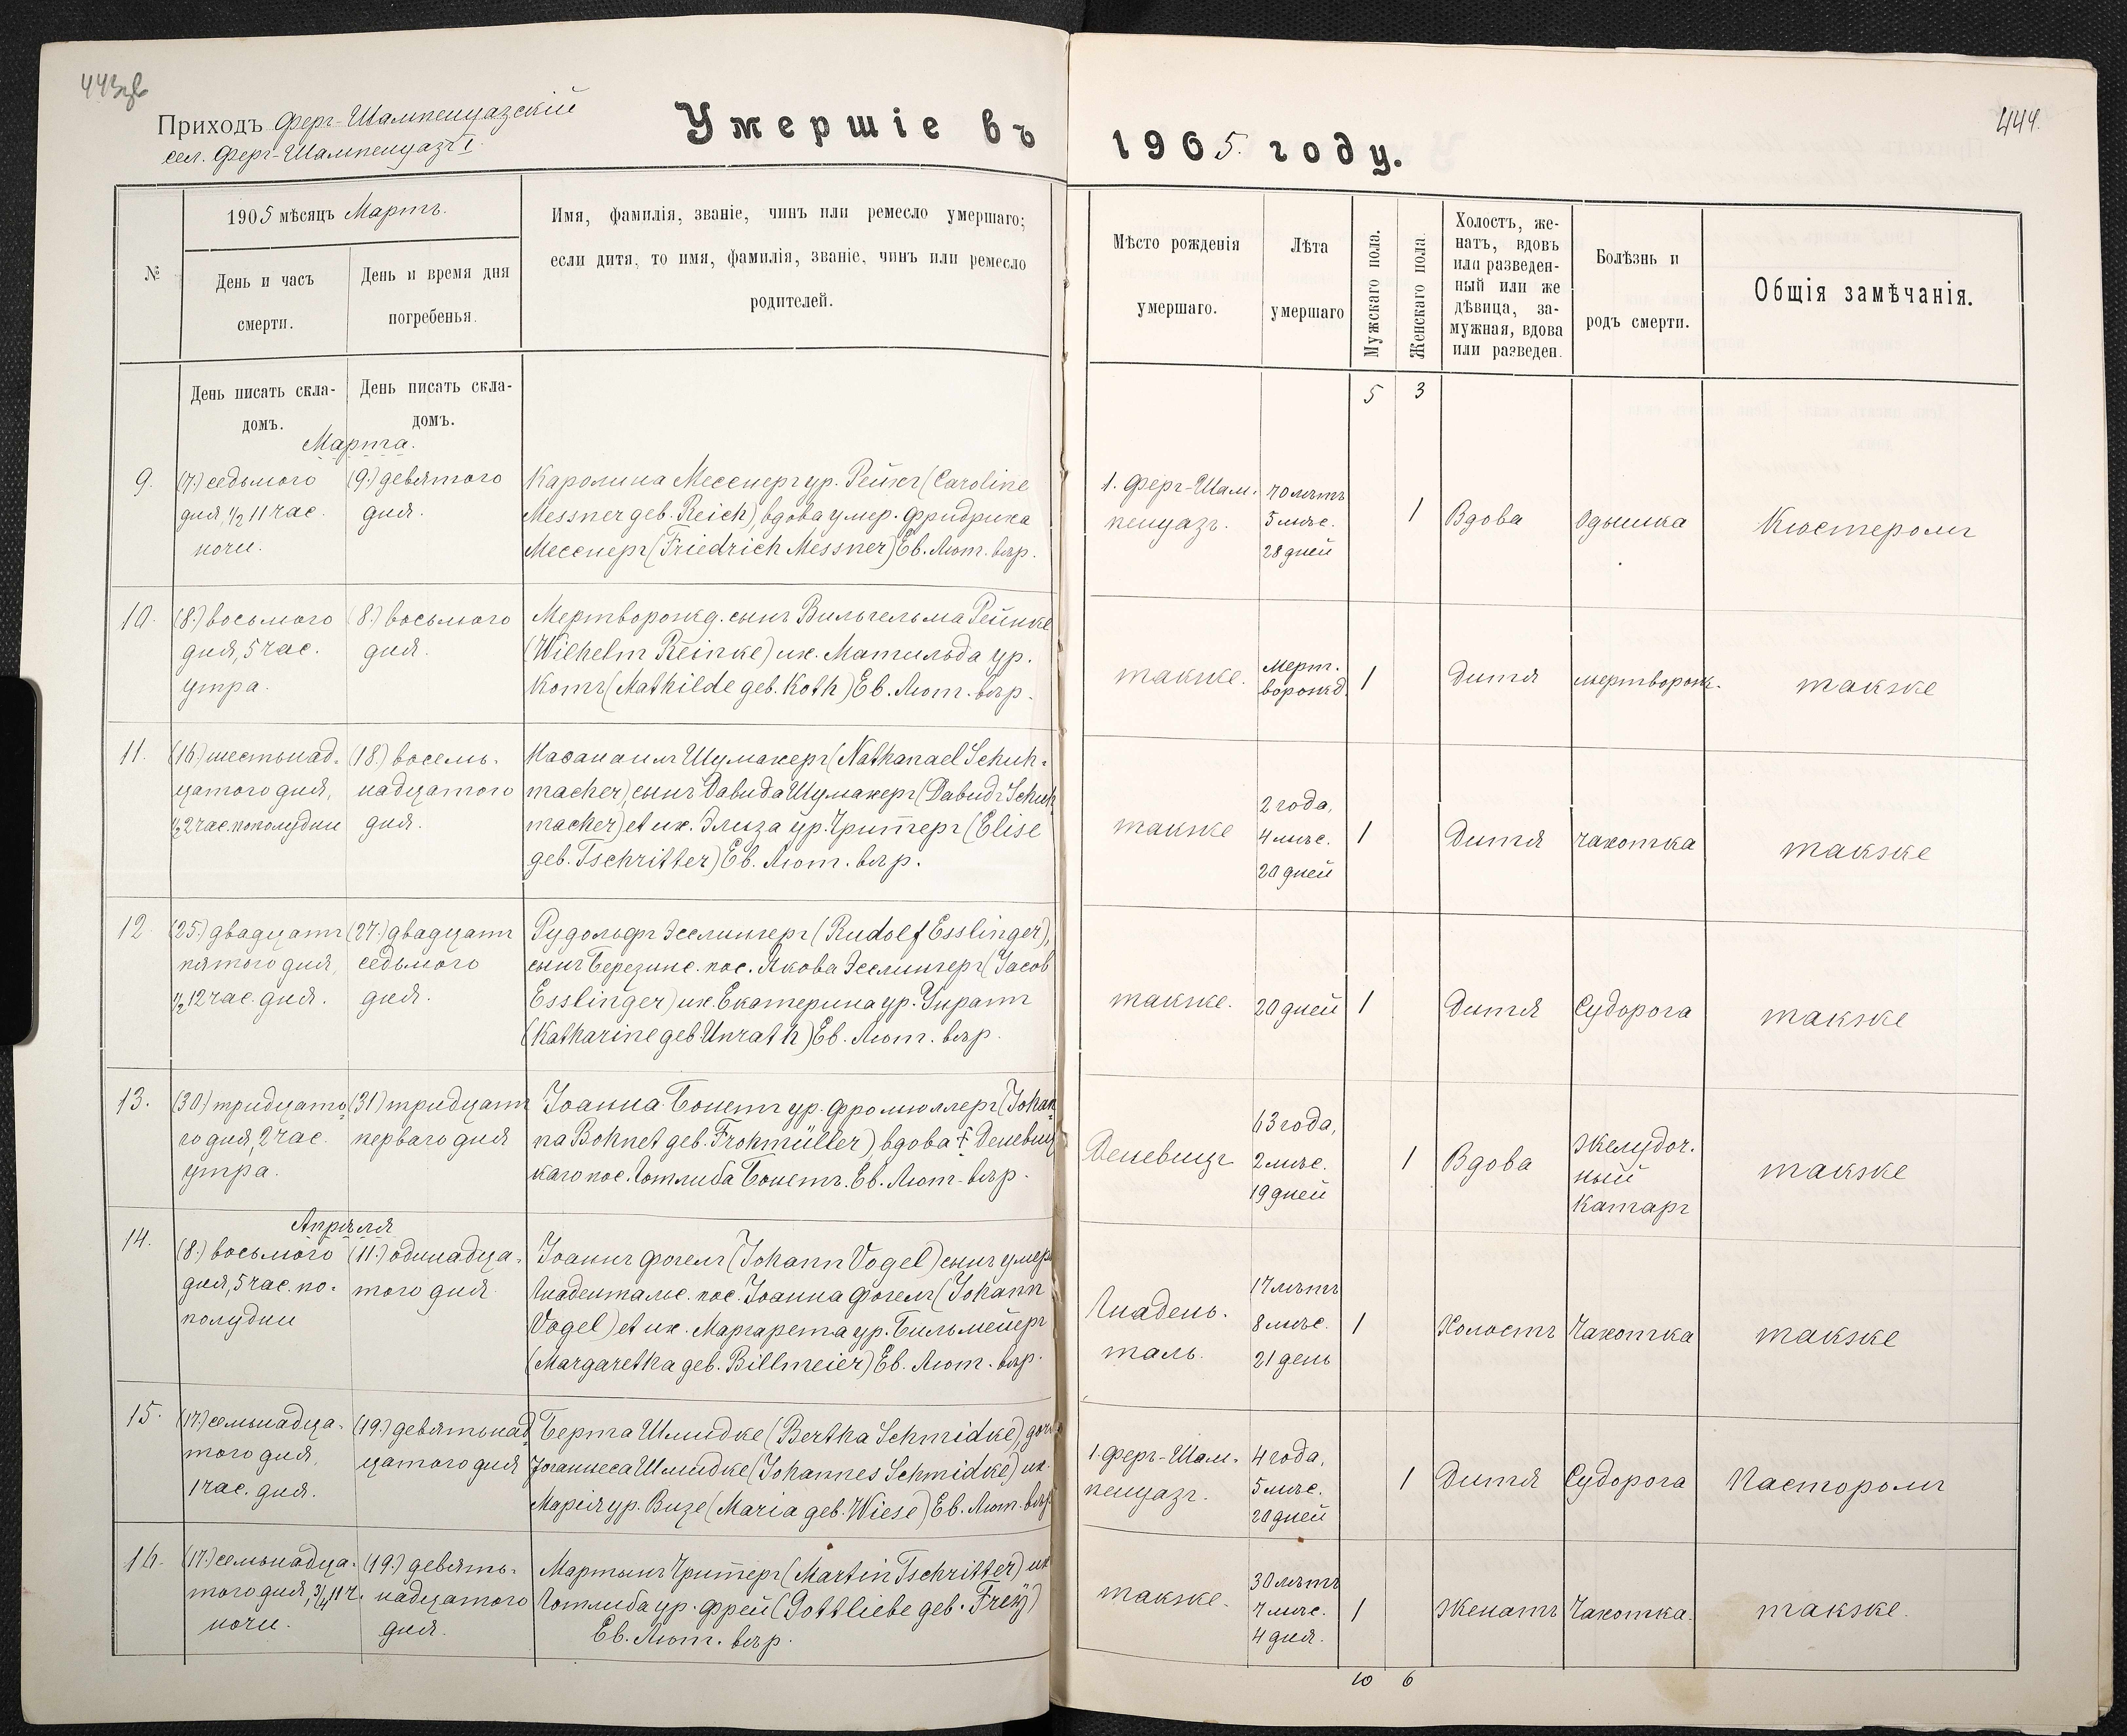 443об
Приходъ Ферг-Шампенуазскій
сел. Ферг-Шампенуазъ I.
Умершіе въ
1905 мѣсяцъ Мартъ.
№
День и часъ
смерти.
День и время дня
погребенья.
Имя, фамилія, званіе, чинъ или ремесло умершаго;
если дитя, то имя, фамилія, званіе, чинъ или ремесло
родителей.
День писать скла-
домъ.
День писать скла-
домъ.
Марта.
9.
(7.) седьмого
дня, ½ 11 час.
ночи.
(9.) девятого
дня.
Каролина Месснеръ ур. Рейхъ (Caroline
Messner geb. Reich), вдова умер. Фридриха
Месснеръ (Friedrich Messner) Ев. Лют. вѣр.
10.
(8.) восьмого
дня, 5 час.
утра.
(8.) восьмого
дня.
Мертворожд. сынъ Вильгельма Рейнке
(Wilhelm Reinke) иж. Матильда ур.
Котъ (Mathilde geb. Koth) Ев. Лют. вѣр.
11.
(16) шестьнад-
цатого дня,
½ 2 час. пополудни
(18.) восемь-
надцатого
дня.
Наѳанаилъ Шумахеръ (Nathanael Schuh-
macher), сынъ Давида Шумахеръ (Давидъ Schuh
macher) et иж. Элиза ур. Чриттеръ (Elise
geb. Tschritter) Ев. Лют. вѣр.
12.
(25.) двадцать
пятого дня,
½ 12 час. дня.
(27.) двадцать
седьмого
дня.
Рудольфъ Эсслингеръ (Rudolf Esslinger),
сынъ Березинс. пос. Якова Эсслингеръ (Jacob
Esslinger) иж. Екатерина ур. Унратъ
(Katharine geb Unrath) Ев. Лют. вѣр.
13.
(30) тридцато-
го дня, 2 час.
утра.
(31) тридцать
перваго дня
Іоанна Бонетъ ур. Фромюллеръ (Johan-
na Bohnet geb. Frohmüller), вдова † Деневиц
каго пос. Готлиба Бонетъ. Ев. Лют. вѣр.
Апрѣля
14.
(8.) восьмого
дня, 5 час. по-
полудни
(11.) одинадца-
того дня.
Іоаннъ Фогель (Johann Vogel) сынъ умер.
Гнадентальс. пос. Іоанна Фогель (Johann
Vogel) et иж. Маргарета ур. Бильмейеръ
(Margaretha geb. Billmeier) Ев. Лют. вѣр.
15.
(17.) семьнадца-
того дня,
1 час. дня.
(19.) девятьнад-
цатого дня
Берта Шмидке (Bertha Schmidke), дочь
Іоганнеса Шмидке (Johannes Schmidke) иж.
Марія ур. Визе (Maria geb. Wiese) Ев. Лют. вѣр.
16.
(17.) семьнадца-
того дня, ¾ 11 ч.
ночи.
(19.) девять-
надцатого
дня.
Мартынъ Чриттеръ (Martin Tschritter) иж
Готлиба ур. Фрей (Gottliebe geb. Frey)
Ев. Лют. вѣр.
444.
1905. году.
Мѣсто рожденія
умершаго.
Лѣта
умершаго
Мужскаго пола.
Женскаго пола.
Холостъ, же-
натъ, вдовъ
или разведен-
ный или же
дѣвица, за-
мужная, вдова
или разведен.
Болѣзнь и
родъ смерти.
Общія замѣчанія.
5
3
1. Ферг-Шам-
пенуазъ.
70 лѣтъ
5 мѣс.
28 дней
1
Вдова
Одышка
Кюстеромъ
также.
Мерт-
ворожд.
1
Дитя
мертворож.
также
также
2 года,
4 мѣс.
20 дней
1
Дитя
чахотка
также
также.
20 дней
1
Дитя
Судорога
также
Деневицъ
63 года,
2 мѣс.
19 дней
1
Вдова
Желудоч-
ный
катаръ
также
Гнаден-
таль.
17 лѣтъ
8 мѣс.
21 день
1
Холостъ
Чахотка
также
1. Ферг-Шам-
пенуазъ.
4 года,
5 мѣс.
20 дней
1
Дитя
Судорога
Пасторомъ
также.
30 лѣтъ
7 мѣс.
4 дня.
1
Женатъ
Чахотка.
также.
10
6